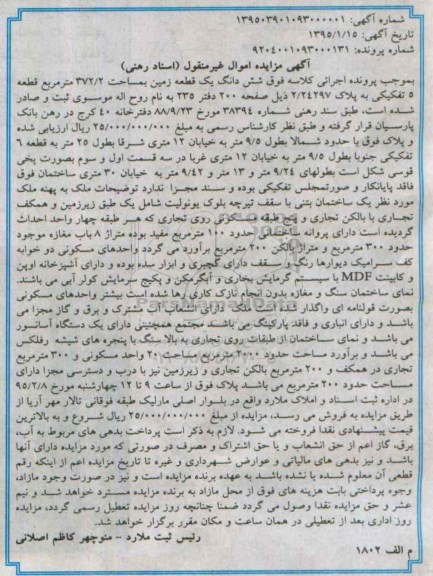 شماره آگهی: ۱۳۹۵۰۳۹۰۱۰۹۳۰۰۰۰۰۱
تاریخ آگهی: ۱۳۹۵/۱/۱۵
شماره پرونده: ۹۲۰۴۰۰۱۰۹۳۰۰۰۱۳۱
آگهی مزایده اموال غیرمنقول (اسناد رهنی)
بموجب پرونده اجرائی کلاسه فوق شش دانگ یک قطعه زمین بمساحت ۳۷۲/۲ مترمربع قطعه
۵ تفکیکی به پلاک ۲/۲۴۲۹۷ ذیل صفحه ۲۰۰ دفتر ۲۳۵ به نام روح اله موسوی ثبت و صادر
شده است، طبق سند رهنی شماره ۳۸۳۹۴ مورخ ۸۸/۹/۲۳ دفترخانه ۴۰ کرج در رهن بانک
پارسیان قرار گرفته و طبق نظر کارشناس رسمی به مبلغ ۲۵/۰۰۰/۰۰۰/۰۰۰ ریال ارزیابی شده
و پلاک فوق با حدود شمالا بطول ۹/۵ متر به خیابان ۱۲ متری شرقا بطول ۲۵ متر به قطعه ۶
تفکیکی جنوبا بطول ۹/۵ متر به خیابان ۱۲ متری غربا در سه قسمت اول و سوم بصورت پخی
قوسی شکل است بطولهای ۹/۲۴ متر و ۱۳ متر و ۹/۴۲ متر به خیابان ۳۰ متری ساختمان فوق
فاقد پایانکار و صورتمجلس تفکیکی بوده و سند مجزا ندارد توضیحات ملک به پهنه ملک
مورد نظر یک ساختمان بتنی با سقف تیرچه بلوک یونولیت شامل یک طبق زیرزمین و همکف
تجاری با بالکن تجاری و پنج طبقه مسکونی روی تجاری که هر طبقه چهار واحد احداث
گردیده است دارای پروانه ساختمان حدود ۱۰۰ مترمربع مفید بوده متراژ ۸ باب مغازه موجود
حدود ۳۰۰ مترمربع و متراژ بالکن ۲۰۰ مترمربع برآورد می گردد واحدهای مسکونی دو خوابه
کف سرامیک دیوارها رنگ و سقف دارای گچبری و ابزار ساده بوده و دارای آشپزخانه اوپن
و کابینت MDF با سیستم گرمایش بخاری و آبگرمکن و پکیج سرمایش کولر آبی می باشند.
نمای ساختمان سنگ و مغازه بدون انجام نازک کاری رها شده است بیشتر واحدهای مسکونی
بصورت قولنامه ای واگذار شده است ملک دارای انشعاب آب مشترک و برق و گاز مجزا می
باشد و دارای انباری و فاقد پارکینگ می باشد مجتمع همچنینی دارای یک دستگاه آسانسور
می باشد و نمای ساختمان از طبقات روی تجاری به بالا سنگ با پنجره های شیشه رفلکس
می باشد و برآورد مساحت حدود ۲۰۰۰ مترمربع بمساحت ۲۰ واحد مسکونی و ۳۰۰ مترمربع
تجاری در همکف و ۲۰۰ مترمربع بالکن تجاری و زیرزمین نیز با درب و دسترسی مجزا دارای
مساحت حدود ۲۰۰ مترمربع می باشد پلاک فوق از ساعت ۹ تا ۱۲ چهارشنبه مورخ ۹۵/۲/۸
در اداره ثبت اسناد و املاک ملارد واقع در بلوار اصلی مارلیک طبقه فوقانی تالار مهر آریا از
طریق مزایده به فروش می رسد، مزایده از مبلغ ۲۵/۰۰۰/۰۰۰/۰۰۰ ریال شروع و به بالاترین
قیمت پیشنهادی نقدا فروخته می شود. لازم به ذکر است پرداخت بدهی های مربوط به آب،
برق، گاز اعم از حق انشعاب و یا حق اشتراک و مصرف در صورتی که مورد مزایده دارای آنها
باشد و نیز بدهی های مالیاتی و عوارض شهرداری و غیره تا تاریخ مزایده اعم از اینکه رقم
قطعی آن معلوم شده یا نشده باشد به عهده برنده مزایده است و نیز در صورت وجود مازاد،
وجوه پرداختی بابت هزینه های فوق از محل مازاد به برنده مزایده مسترد خواهد شد و نیم
عشر و حق مزایده نقدا وصول می گردد ضمنا چنانچه روز مزایده تعطیل رسمی گردد، مزایده
روز اداری بعد از تعطیلی در همان ساعت و مکان مقرر برگزار خواهد شد.
رئیس ثبت ملارد - منوچهر کاظم اصلانی
م الف ۱۸۰۲